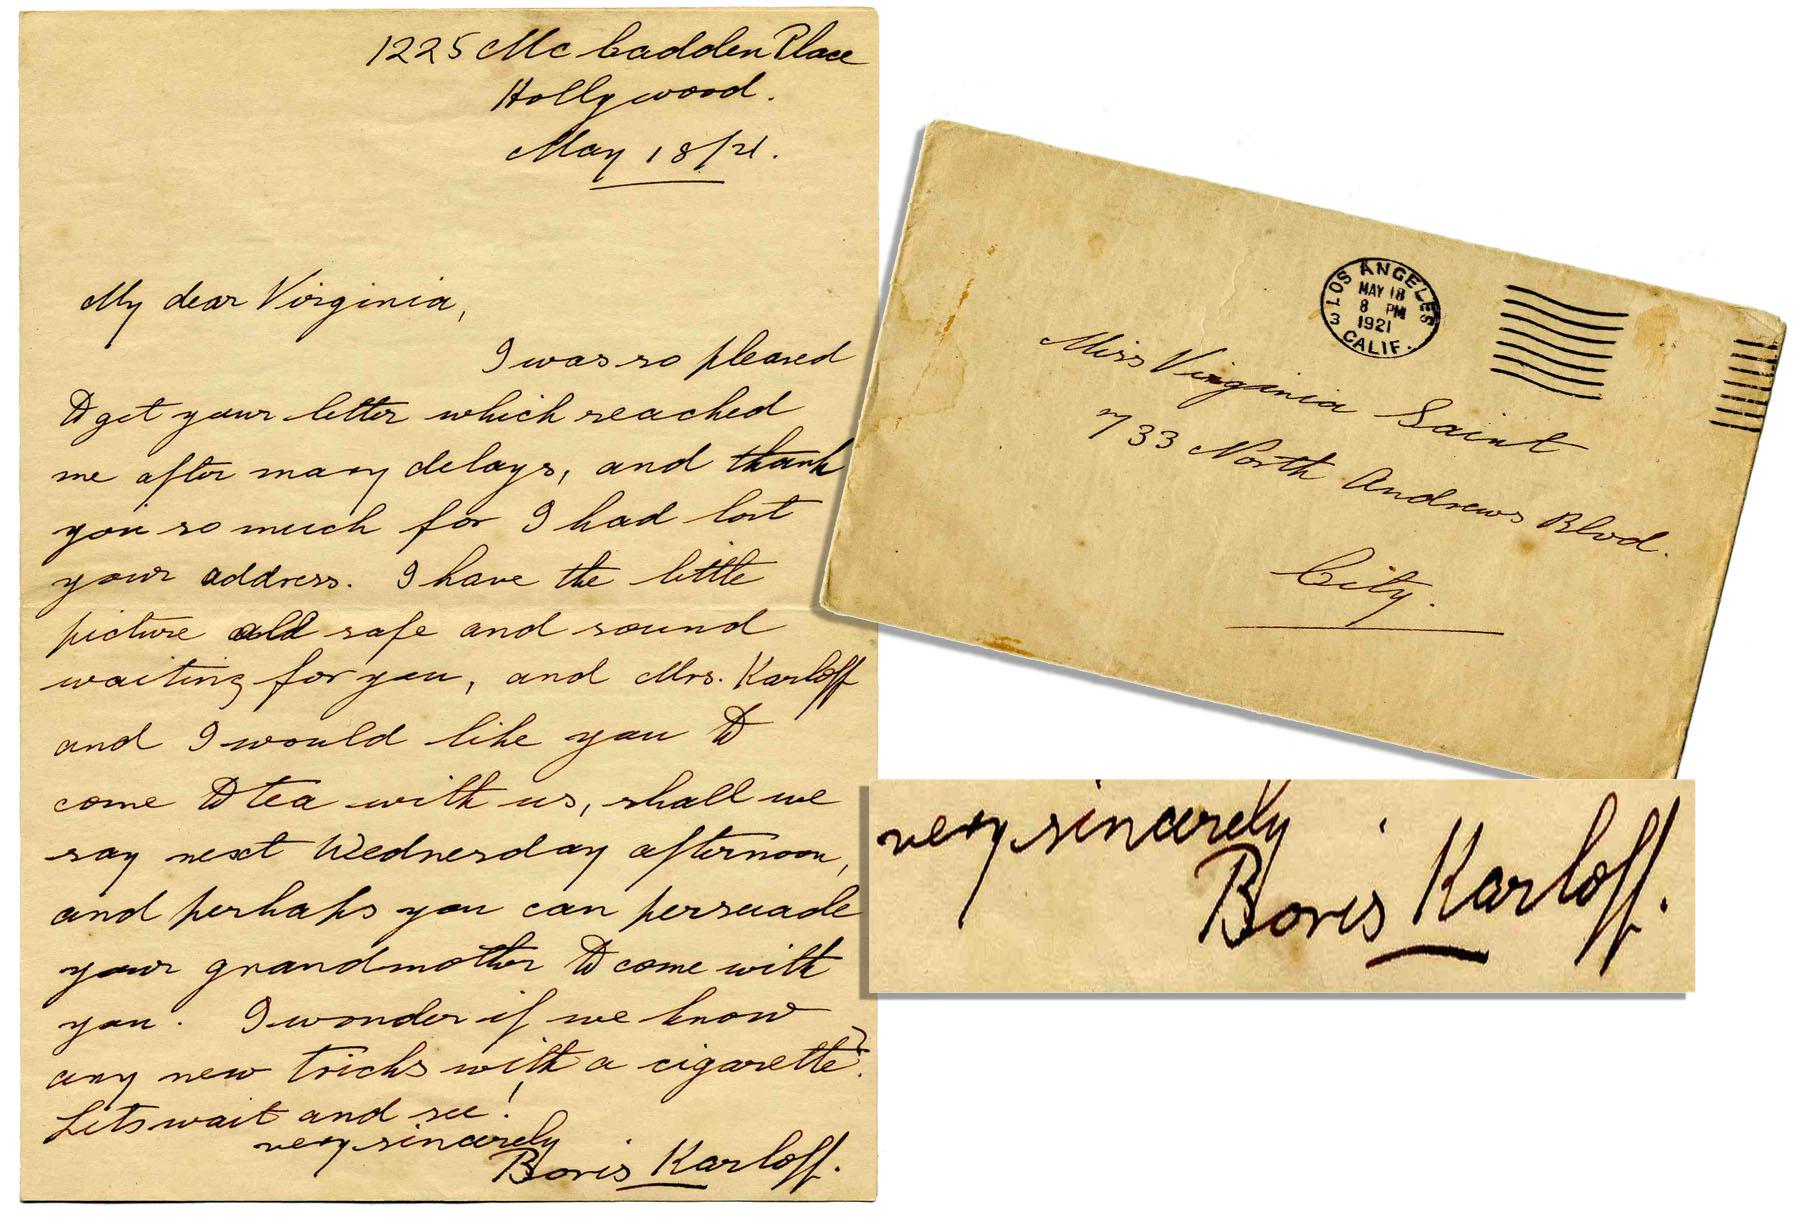 1225 McCadden Place
Hollywood.
May 18/21.
My dear Virginia,
I was so pleased
to get your letter which reached
me after many delays, and thank
you so much for I had lost
your address. I have the little
picture safe and sound
waiting for you, and Mrs. Karloff
and I would like you to
come to tea with us, shall we
say next Wednesday afternoon,
and perhaps you can persuade
your grandmother to come with
you. I wonder if we know
any new tricks with a cigarette?
Lets wait and see!
very sincerely
Boris Karloff.
LOS ANGELES
MAY 18
8 PM
1921
3 CALIF.
Miss Virginia Saint
733 North Andrews Blvd.
City.
very sincerely
Boris Karloff.